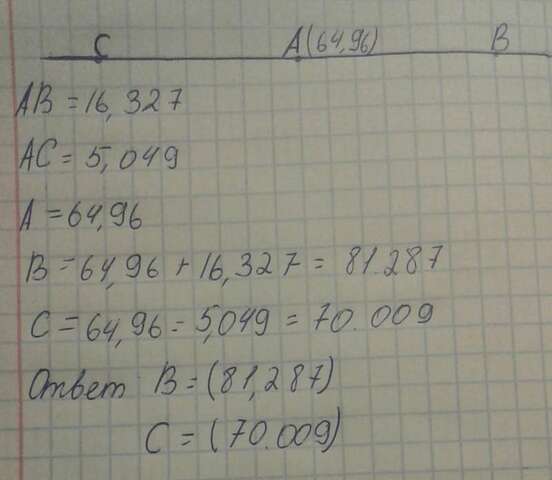 C A(64,96) B
AB = 16,327
AC = 5,049
A = 64,96
B = 64,96 + 16,327 = 81.287
C = 64,96 - 5,049 = 70.009
Ответ B = (81,287)
C = (70.009)